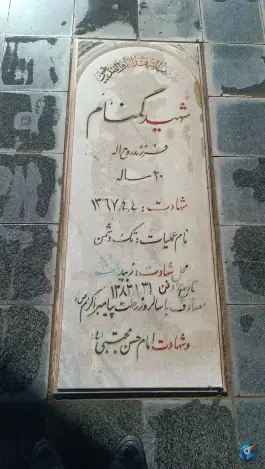 شهید گمنام
فرزند روح اله
۲۰ ساله
شهادت: ۱۳۶۷٫۴٫۴
نام عملیات: تک دشمن
محل شهادت: زبیدات
تاریخ دفن ۱۳۸۳٫۱٫۳۱
مصادف با سالروز رحلت پیامبر اکرم (ص)
و شهادت امام حسن مجتبی (ع)